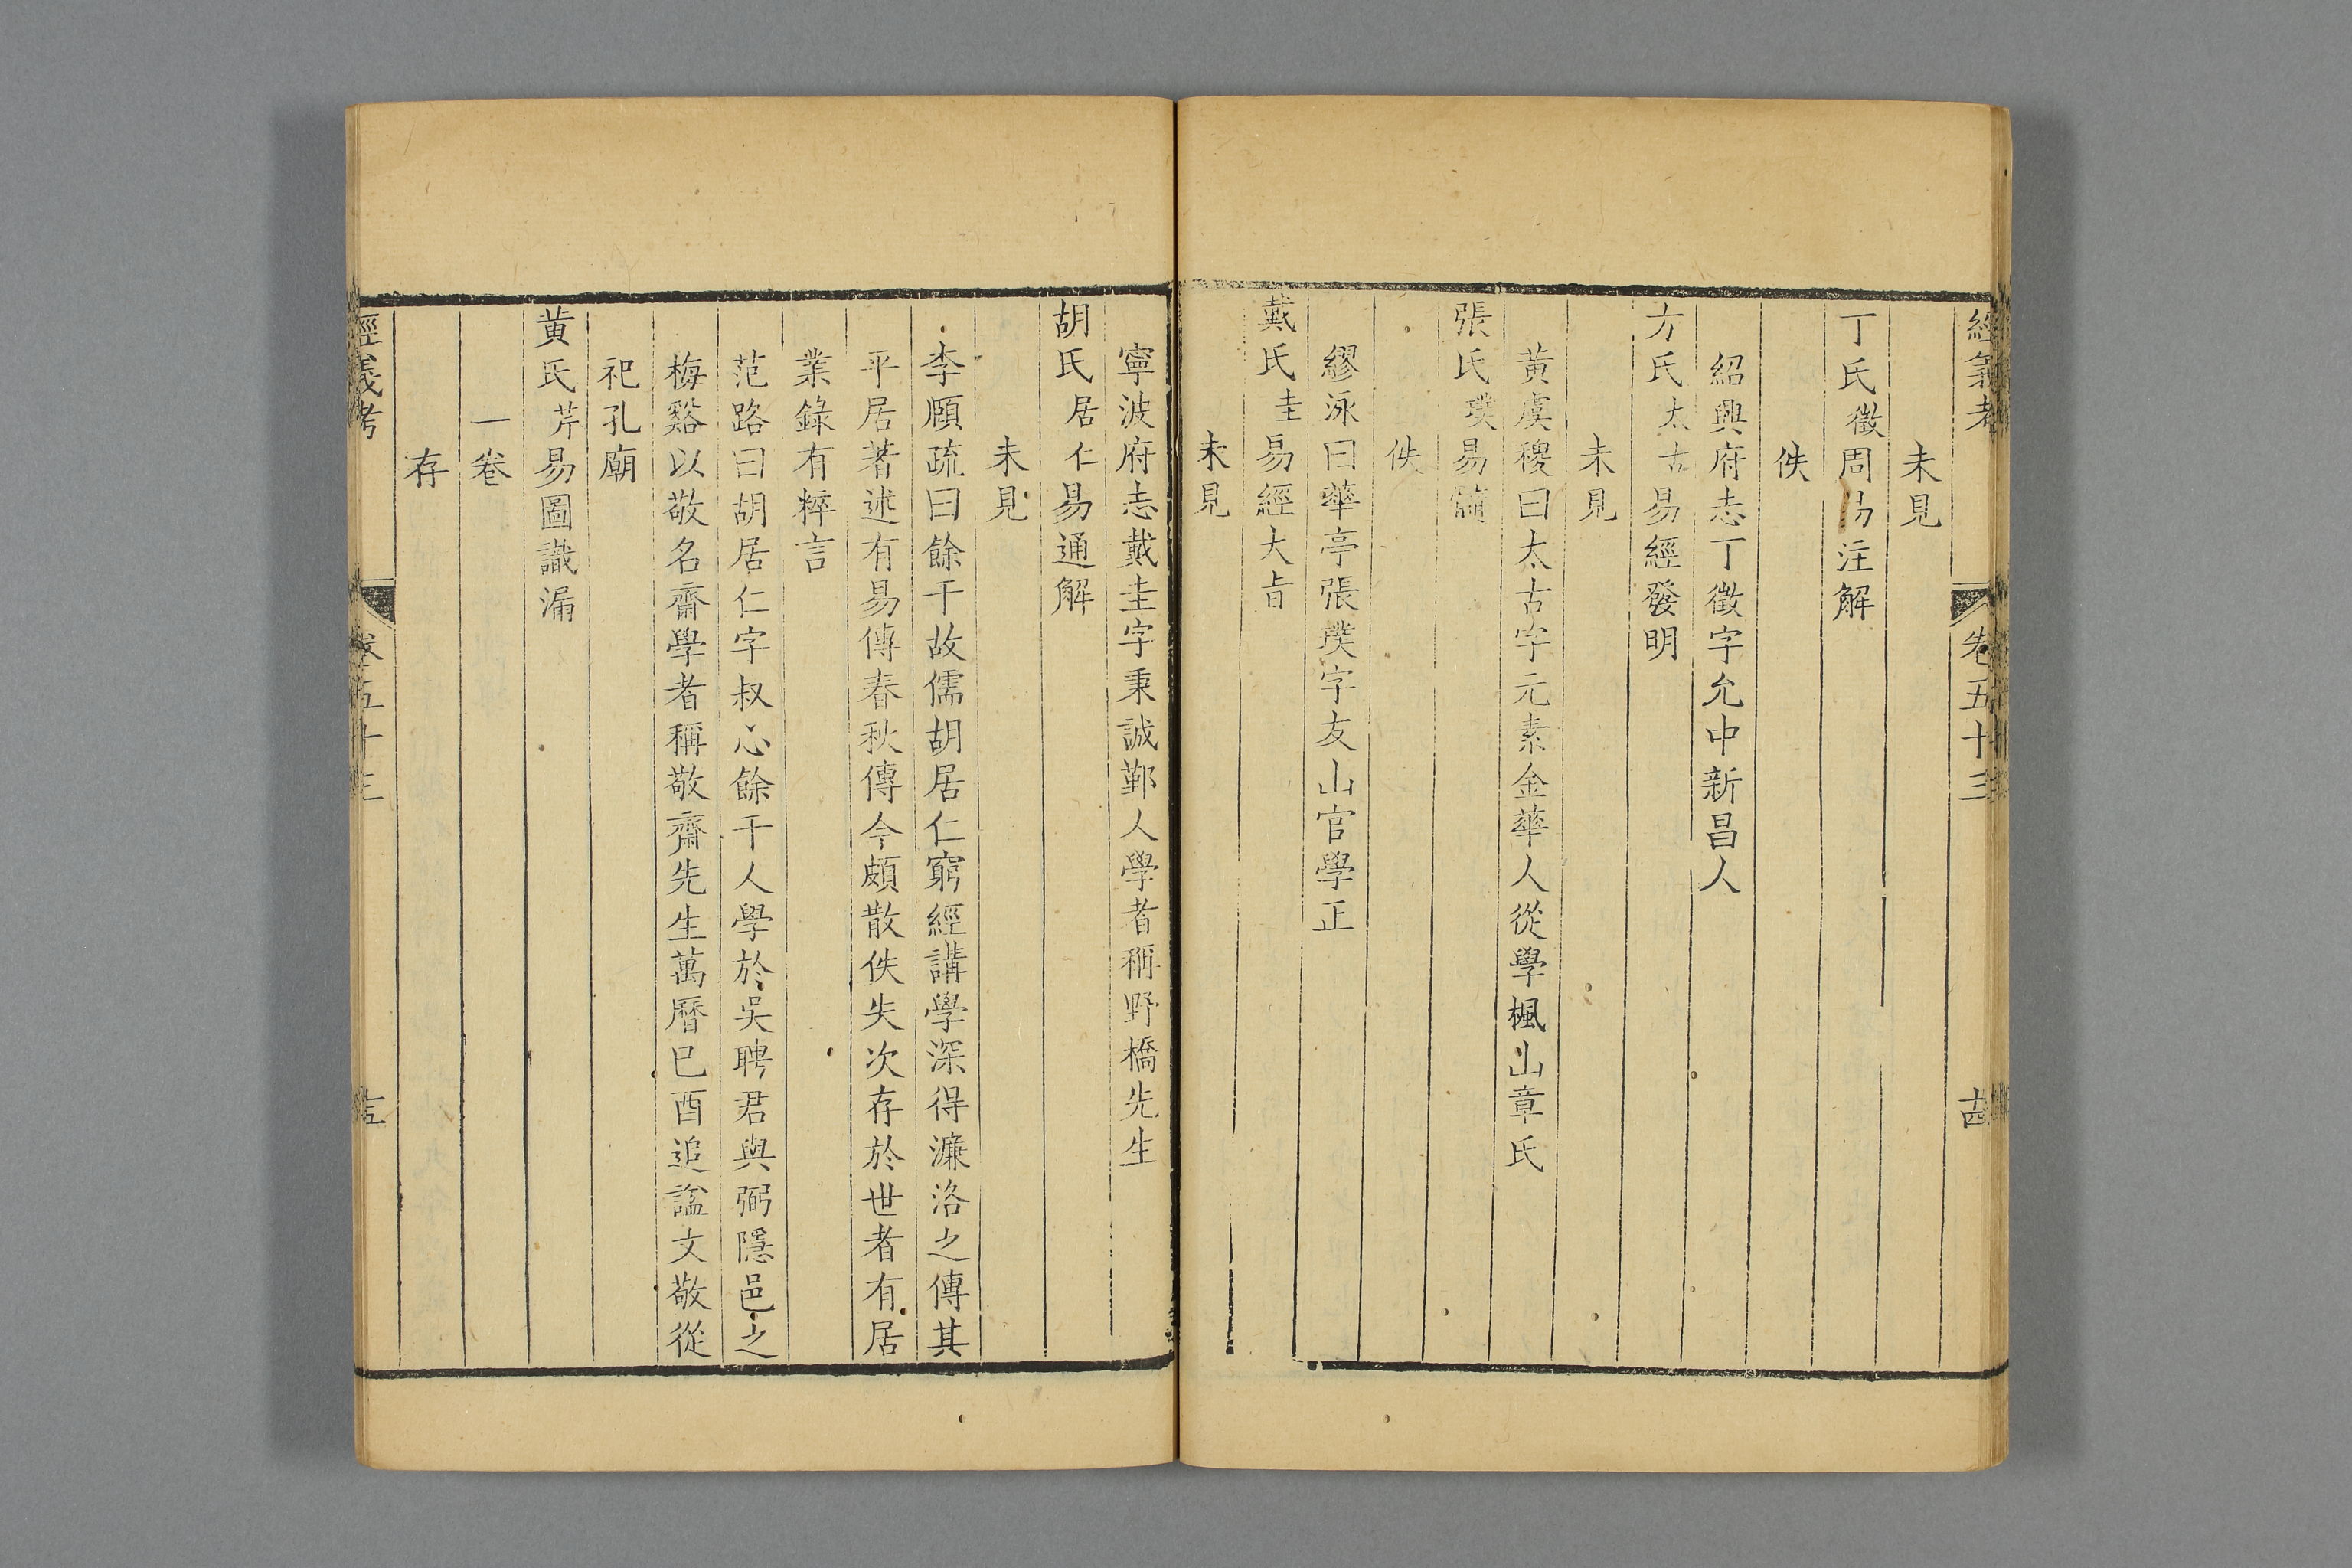 經義考 卷五十三 十四
未見
丁氏徵周易注解
佚
紹興府志丁徵字允中新昌人
方氏太古易經發明
未見
黃虞稷曰太古字元素金華人從學楓山章氏
張氏璞易髓
佚
繆泳曰華亭張璞字友山官學正
戴氏圭易經大旨
未見
寧波府志戴圭字秉誠鄞人學者稱野橋先生
胡氏居仁易通解
未見
李頤疏曰餘干故儒胡居仁窮經講學深得濂洛之傳其
平居著述有易傳春秋傳今頗散佚失次存於世者有居
業錄有粹言
范路曰胡居仁字叔心餘干人學於吳聘君與弼隱邑之
梅谿以敬名齋學者稱敬齋先生萬曆巳酉追諡文敬從
祀孔廟
黃氏芹易圖識漏
一卷
存
經義考 卷五十三